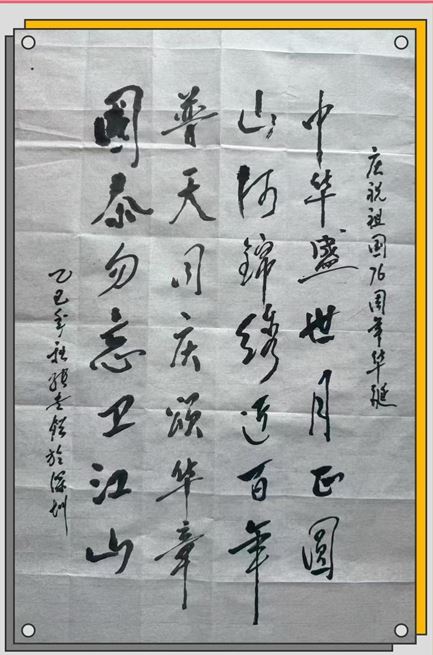 庆祝祖国76周年华诞
中华盛世月正圆
山河錦绣近百年
普天同庆颂华章
国泰勿忘卫江山
乙巳年秋於深圳